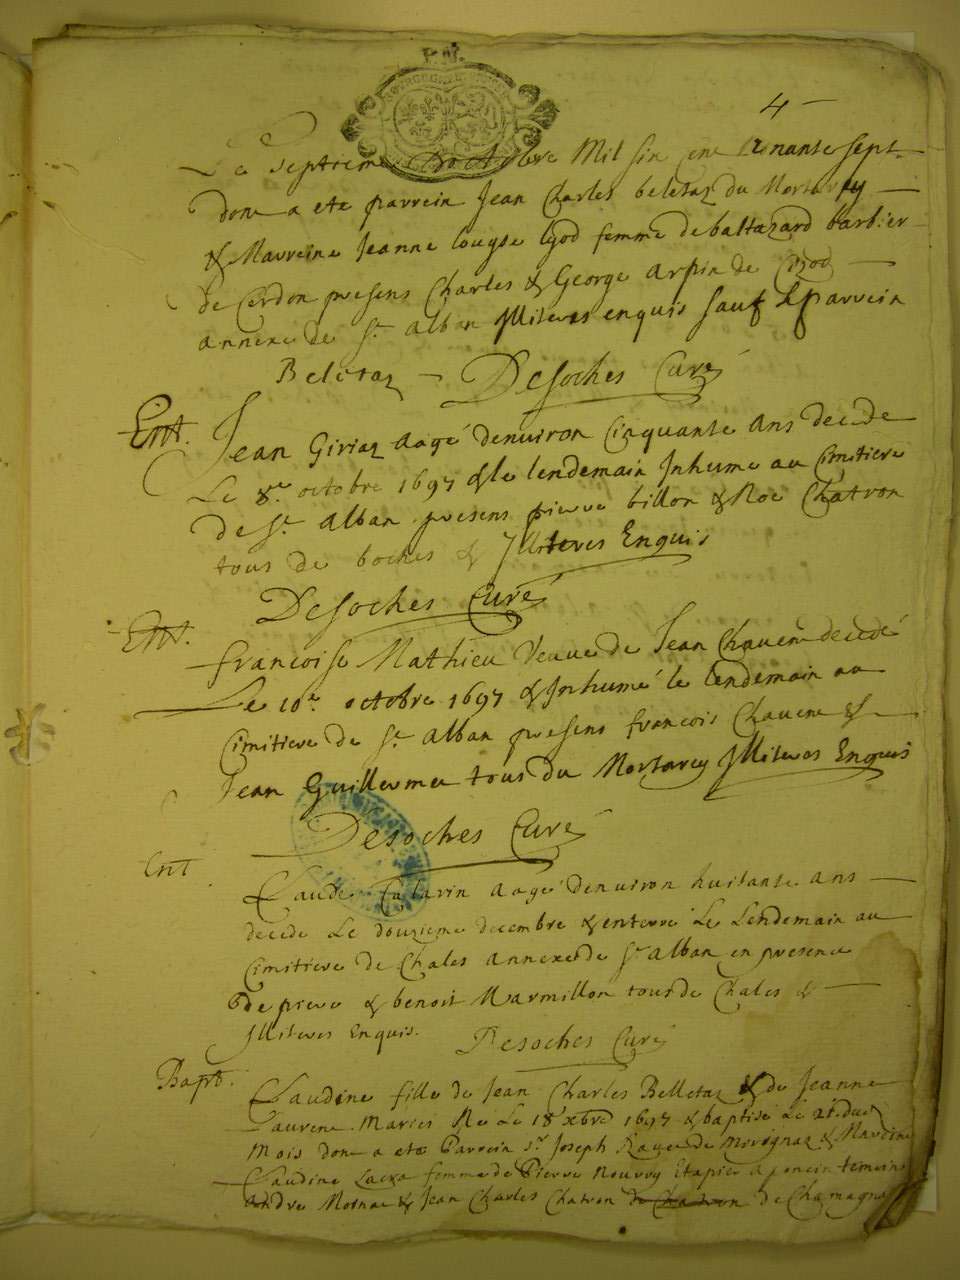 4
Le septieme octobre Mil six cent nonante sept
dont a ete parrein Jean Charles beletaz du Mortarey
& Marreine Jeanne louyse femme de baltazard barbier
de Cerdon presens Charles & George arpin de
annexe de St alban Illiteres enquis sauf le parrein
Beletaz Desoches Curé
Ent. Jean Giriaz aagé denuiron Cinquante ans decede
Le 8e octobre 1697 & le lendemain Inhume au Cimitiere
de St alban presens pierre billon & Roc Chatron
tous de boches & Illiteres Enquis
Desoches Curé
Ent. francoise Mathieu Veuue de Jean Chauen decedé
Le 10e octobre 1697 & Inhumé le lendemain au
Cimitiere de St alban presens francois Chauen &
Jean Guillermet tous du Mortarey Illiteres Enquis
Desoches Curé
Ent Claude aagé denuiron huitante ans
decede Le douzieme decembre & enterre Le Lendemain au
Cimitiere de Chales annexe de St alban en presence
de pierre & benoit Marmillon tous de Chales &
Illiteres Enquis. Desoches Curé
Bapt. Claudine fille de Jean Charles Belletaz & de Jeanne
Laurence Maries Née Le 18 xbre 1697 & baptisé Le du
Mois dont a ete Parrein Sr Joseph de & Mareine
Claudine femme de Pierre Nourry a poncin temoins
Andre & Jean Charles Chatron de Chamagna